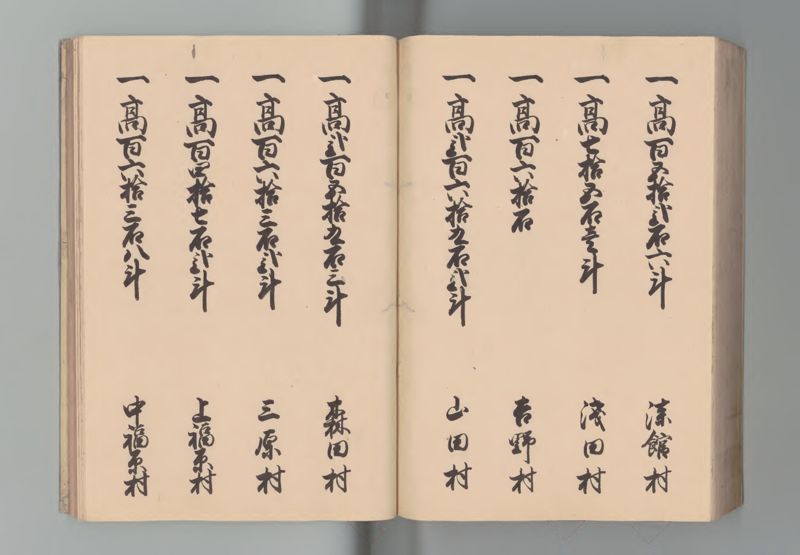 一高百五拾弐石六斗 漆館村
一高七拾五石壱斗 浅田村
一高百六拾石 吉野村
一高弐百六拾九石弐斗 山田村
一高弐百五拾九石三斗 森田村
一高百六拾三石弐斗 三原村
一高百四拾七石弐斗 上福原村
一高百六拾三石八斗 中福原村